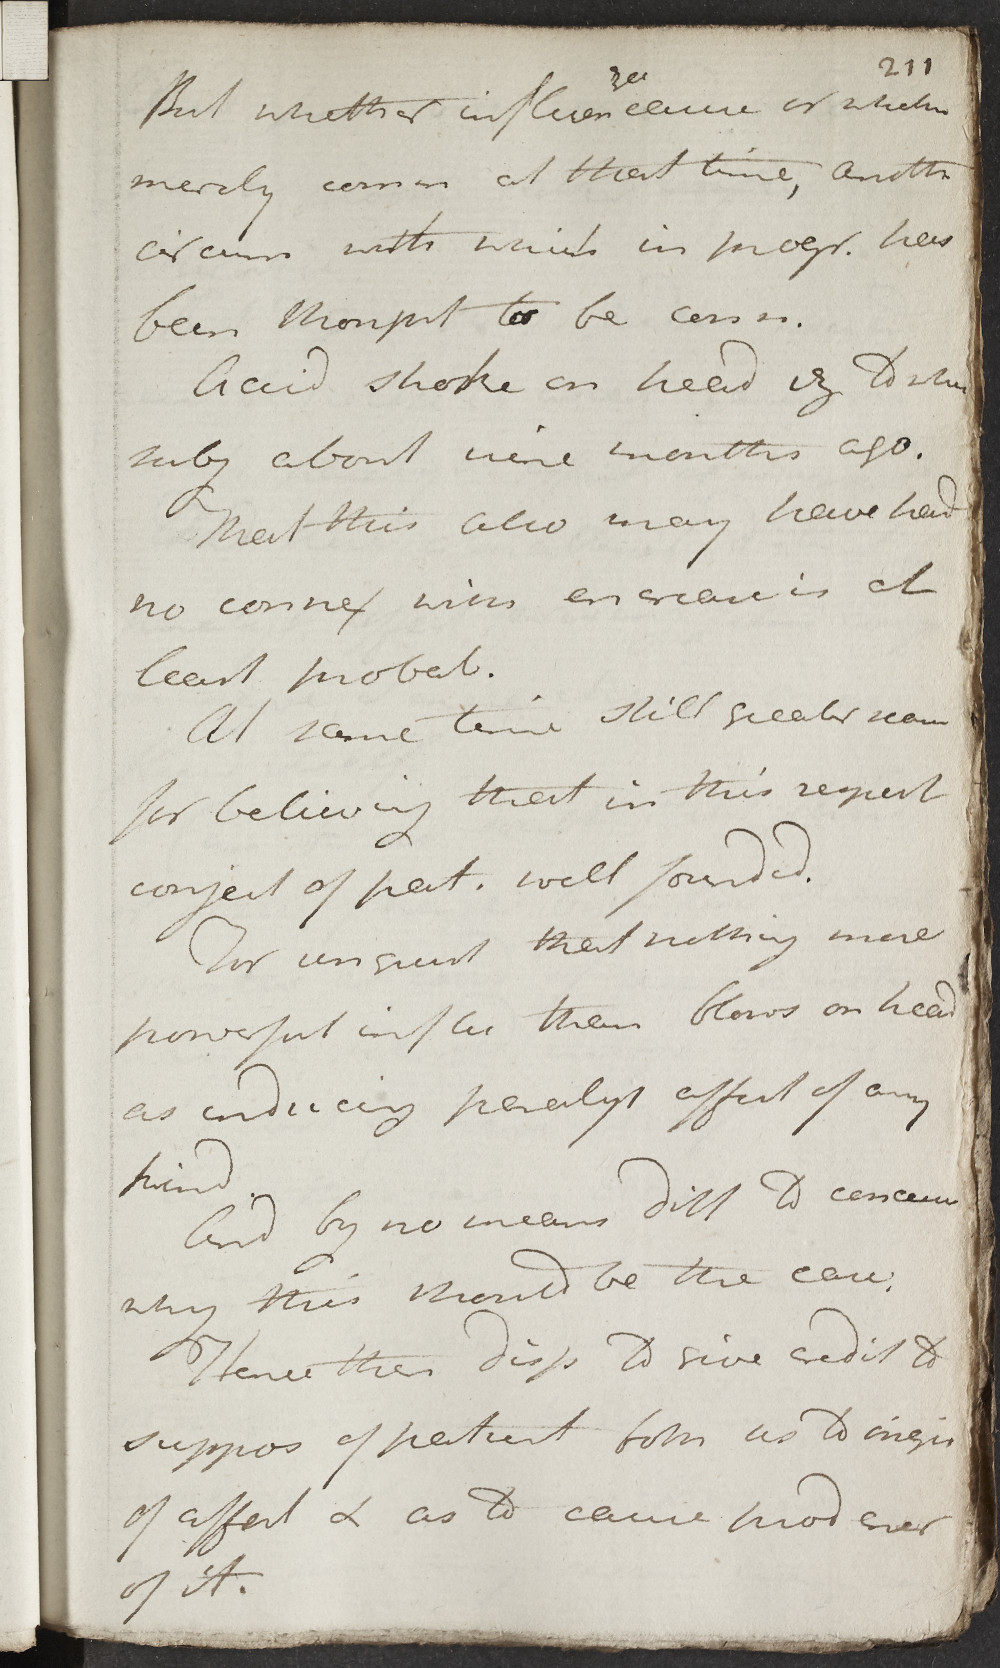 211
But whether influen cause or wheth
merely at that time, anoth
circum with which in progr. has
been thought to be conn.
Accid stroke on head to
about nine months ago.
That this also may have had
no connex with increase is at
least probab.
At same time still greater reason
for believing that in this respect
conject of pat. well founded.
For that nothing more
powerful influ than blows on head
as inducing paralyt affect of any
kind.
And by no means diff to conceive
why this should be the case.
Hence then disp to give credit to
suppos of patient both as to origin
of affect & as to cause prod
of it.